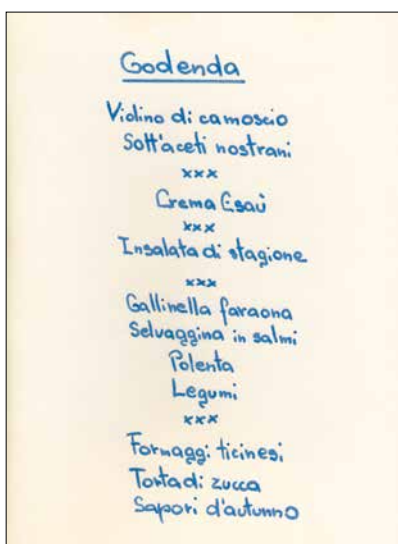 Godenda
Violino di camoscio
Sott'aceti nostrani
xxx
Crema Esaù
xxx
Insalata di stagione
xxx
Gallinella faraona
Selvaggina in salmi
Polenta
Legumi
xxx
Formaggi ticinesi
Torta di zucca
Sapori d'autunno